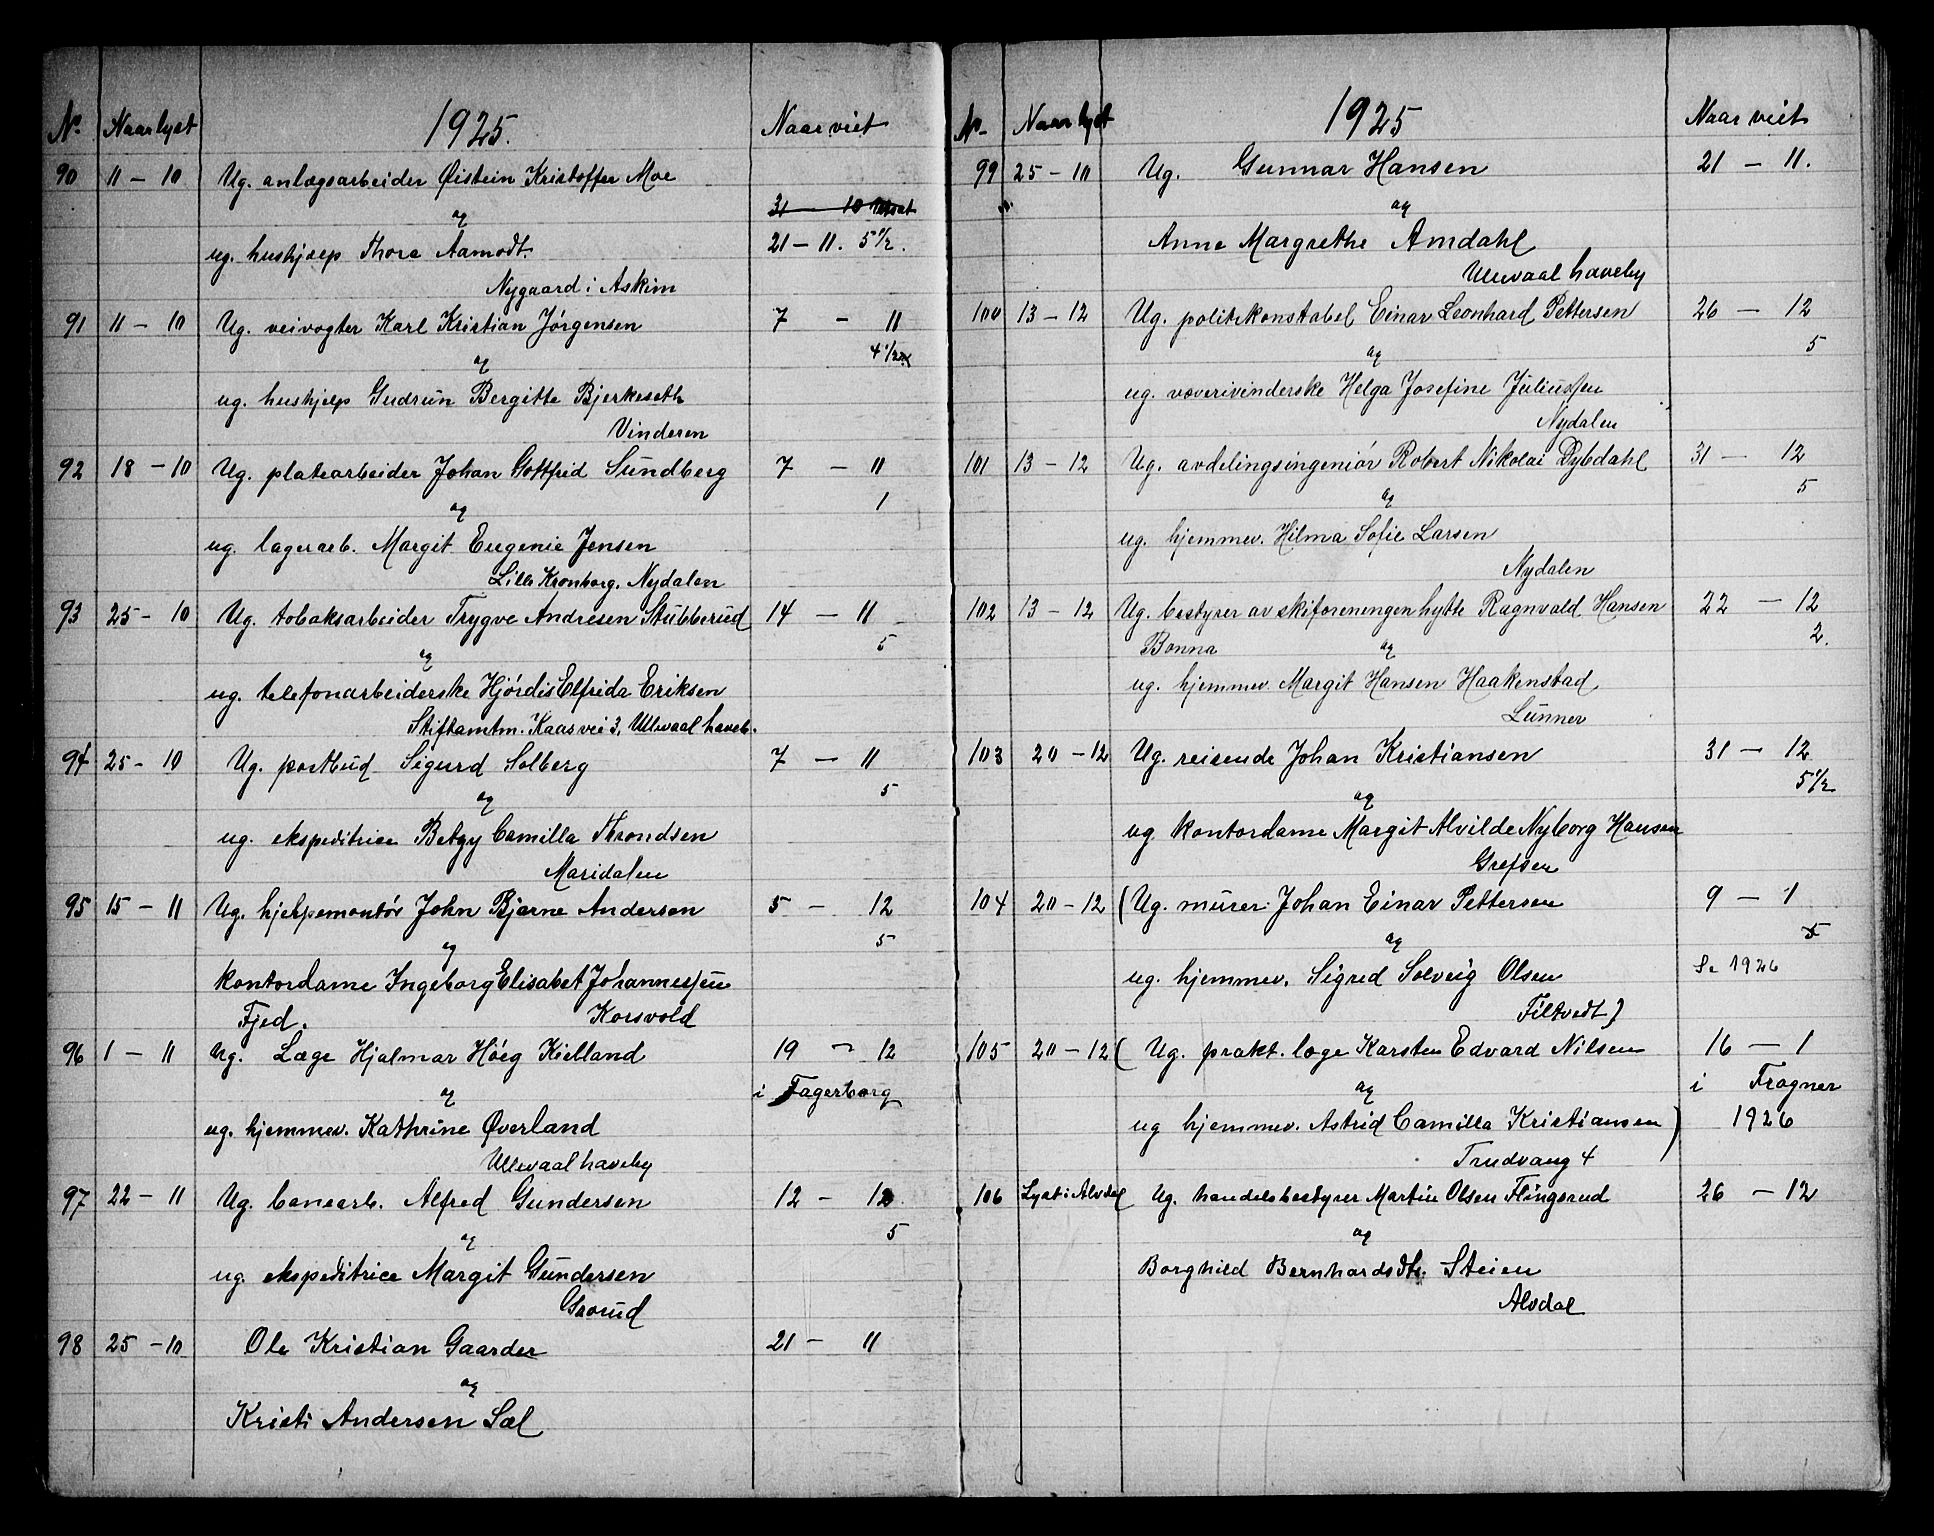 No. Naar lyst 1925. Naar viet
90 11 – 10 Ug. anlægsarbeider Øistein Kristoffer Moe
31 – 10 Utsat
og
ug. hushjælp Thora Aamodt. 21 – 11. 5 1/2.
Nygaard i Askim
91 11 – 10 Ug. veivogter Karl Kristian Jørgensen 7 – 11
og 4 1/2
ug. hushjelp Gudrun Bergitte Bjerkeseth
Vinderen
92 18 – 10 Ug. platearbeider Johan Gottfred Sundberg 7 – 11
og 1
ug. lagerarb. Margit Eugenie Jensen
Lille Kronborg, Nydalen
93 25 – 10 Ug. tobaksarbeider Trygve Andresen Stubberud 14 – 11
og 5
ug. telefonarbeiderske Hjørdis Elfrida Eriksen
Stiftamtm. Kaasvei 3, Ullevaal haveb.
94 25 – 10 Ug. postbud Sigurd Solberg 7 – 11
og 5
ug. ekspeditrice Betzy Camilla Throndsen
Maridalen
95 15 – 11 Ug. hjelpemontør John Bjarne Andersen 5 – 12
og 5
kontordame Ingeborg Elisabet Johannessen
Fjed. Korsvold
96 1 – 11 Ug. Læge Hjalmar Høeg Kielland 19 – 12
og i Fagerborg
ug. hjemmev. Kathrine Øverland
Ullevaal haveby
97 22 – 11 Ug. banearb. Alfred Gundersen 12 – 12
og 5
ug. ekspeditrice Margit Gundersen
Grorud
98 25 – 10 Ole Kristian Gaarder 21 – 11
og
Kristi Andersen Sæl
No. Naar lyst 1925 Naar viet
99 25 – 10 Ug. Gunnar Hansen 21 – 11.
og
Anne Margrethe Amdahl
Ullevaal haveby
100 13 – 12 Ug. politikonstabel Einar Leonhard Pettersen 26 – 12
og 5
ug. væverivinderske Helga Josefine Juliussen
Nydalen
101 13 – 12 Ug. avdelingsingeniør Robert Nikolai Dybdahl 31 – 12
og 5
ug. hjemmev. Hilma Sofie Larsen
Nydalen
102 13 – 12 Ug. bestyrer av skiforeningen hytte Ragnvald Hansen 22 – 12
Bonna og 2.
ug. hjemmev. Margit Hansen Haakenstad
Lunner
103 20 – 12 Ug. reisende Johan Kristiansen 31 – 12
og 5 1/2
ug. kontordame Margit Alvilde Nyborg Hansen
Grefsen
104 20 – 12 (Ug. murer Johan Einar Pettersen 9 – 1
og 5
ug. hjemmev. Sigrid Solveig Olsen Se 1926
Filtvedt)
105 20 – 12 (Ug. prakt. læge Karsten Edvard Nilsen 16 – 1
og i Frogner
ug hjemmev. Astrid Camilla Kristiansen) 1926
Trudvang 4
106 Lyst i Alvdal Ug. handelsbestyrer Martin Olsen Flingsrud 26 – 12
og
Borghild Bernhardsdtr. Steien
Alvdal